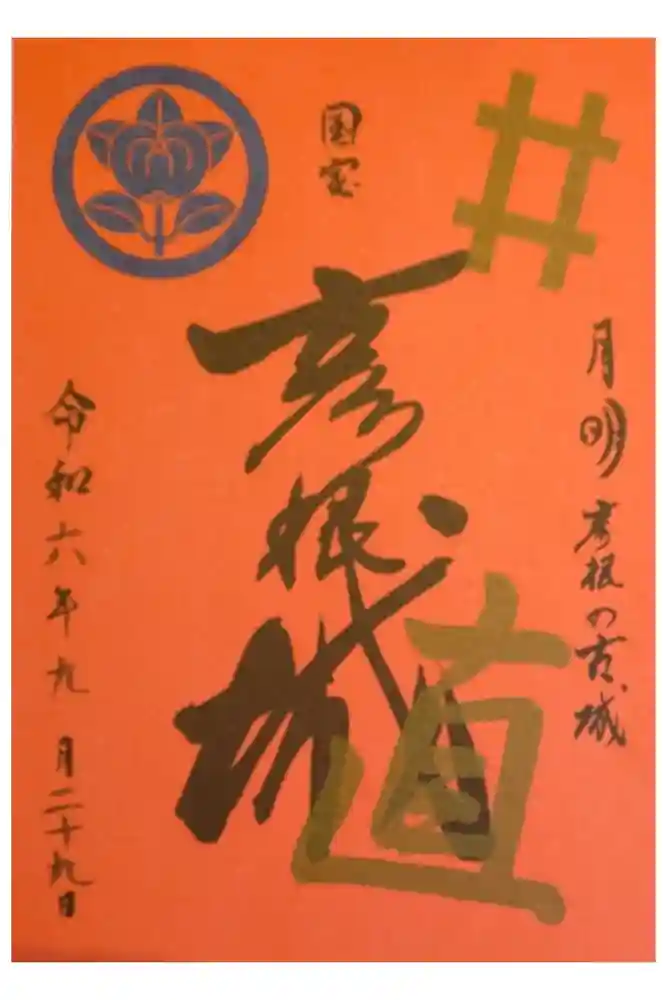 月明彦根の古城
国宝
彦根城
直
令和六年九月二十九日